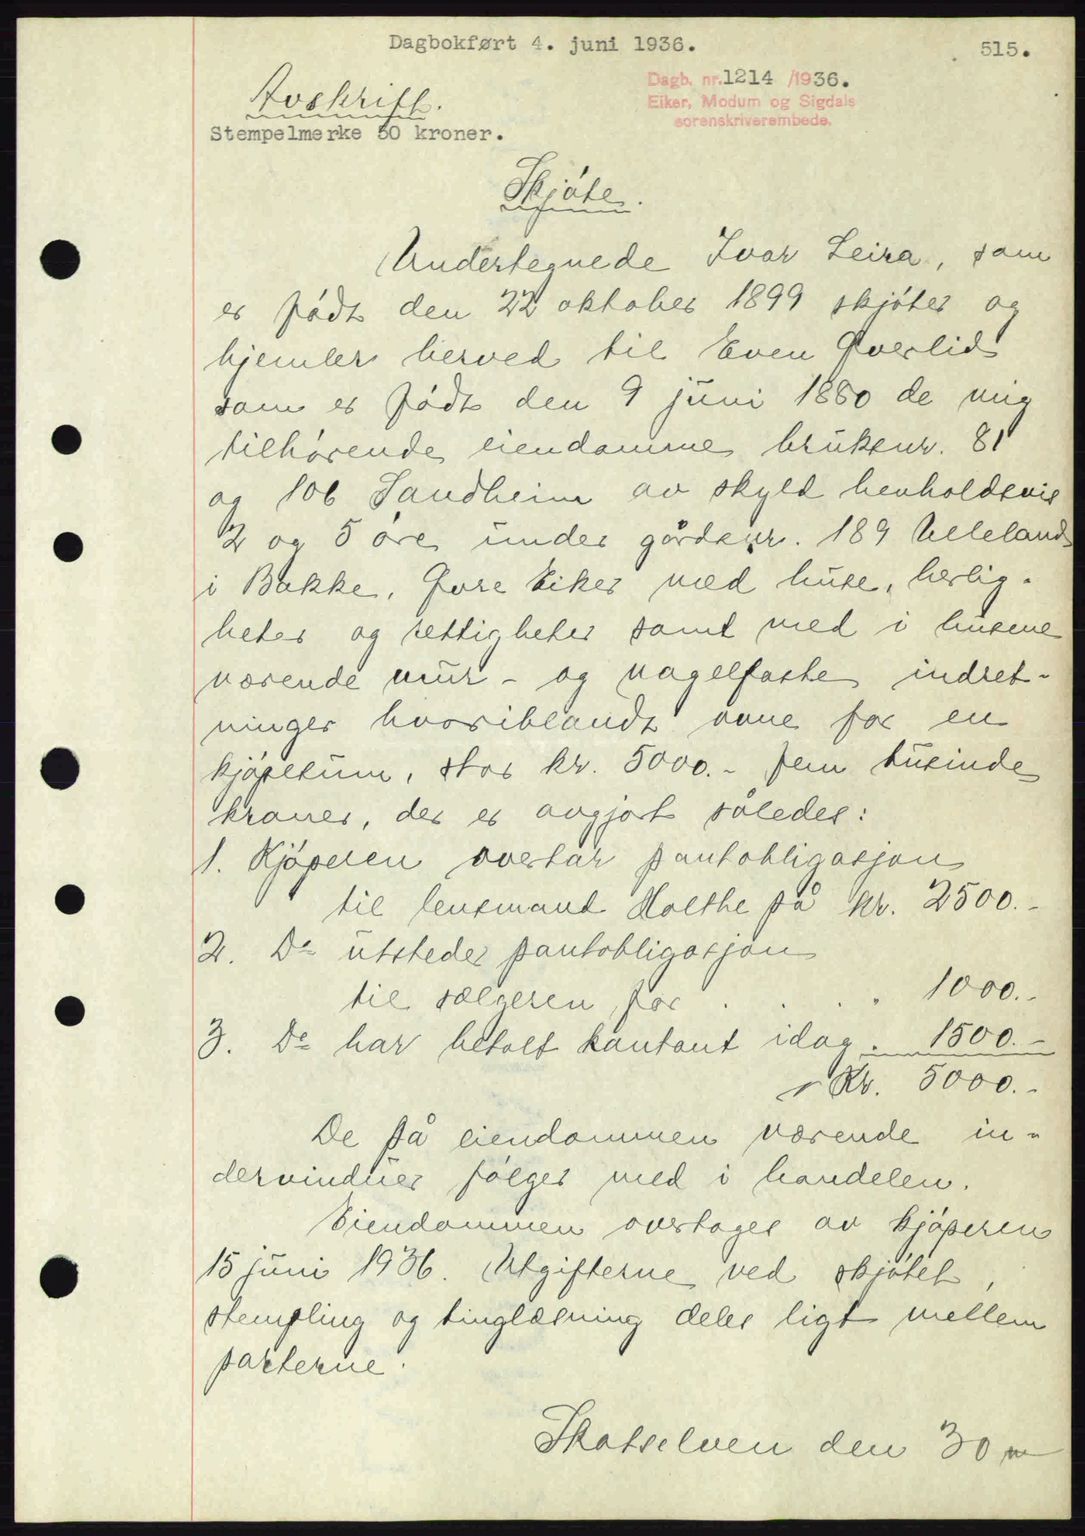 Dagbokført 4. juni 1936.
515.
Dagb. nr. 1214 /1936.
Eiker, Modum og Sigdals
sorenskriverembede.
Avskrift.
Stempelmerke 50 kroner.
Skjøte.
Undertegnede Ivar Leira, som
er født den 22 oktober 1899 skjøter og
hjemler herved til Even Øverlid
som er født den 9 juni 1880 de mig
tilhørende eiendomme bruksnr. 81
og 106 Sandheim av skyld henholdsvis
2 og 5 øre under gårdsnr. 189 Ulleland
i Bakke, Øvre Eiker med huse, herlig-
heter og rettigheter samt med i husene
værende mur- og nagelfaste indret-
ninger hvoriblandt ovne for en
kjøpesum, stor kr. 5000.- fem tusinde
kroner, der er avgjort således:
1. Kjøperen overtar pantobligasjon
til lensmand Holthe på kr. 2500.-
2. Do utsteder pantobligasjon
til sælgeren for . . . . 1000.-
3. Do har betalt kontant idag . 1500.-
Kr. 5000.-
De på eiendommen værende in-
dervinduer følger med i handelen.
Eiendommen overtages av kjøperen
15 juni 1936. Utgifterne ved skjøtet,
stempling og tinglæsning deles ligt mellem
parterne.
Skotselven den 30